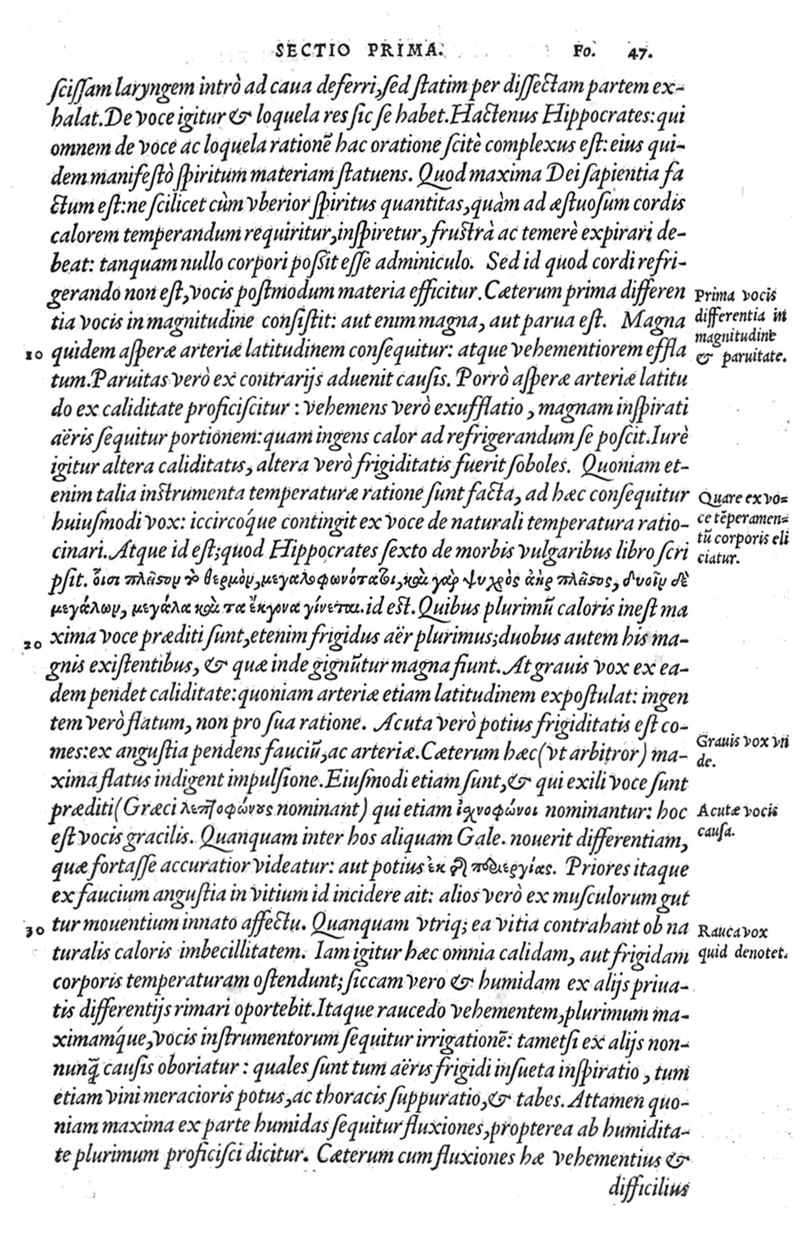 SECTIO PRIMA. Fo. 47.
ſciſſam laryngem intrò ad caua deferri, ſed ſtatim per diſſectam partem ex-
halat. De voce igitur & loquela res ſic ſe habet. Hactenus Hippocrates: qui
omnem de voce ac loquela rationẽ hac oratione ſcitè complexus eſt: eius qui-
dem manifeſtò ſpiritum materiam ſtatuens. Quod maxima Dei ſapientia fa
ctum eſt: ne ſcilicet cùm vberior ſpiritus quantitas, quàm ad æſtuoſum cordis
calorem temperandum requiritur, inſpiretur, fruſtrà ac temerè expirari de-
beat: tanquam nullo corpori poſsit eſſe adminiculo. Sed id quod cordi refri-
gerando non eſt, vocis poſtmodum materia efficitur. Cæterum prima differen
tia vocis in magnitudine conſiſtit: aut enim magna, aut parua eſt. Magna
10 quidem aſperæ arteriæ latitudinem conſequitur: atque vehementiorem effla
tum. Paruitas verò ex contrarijs aduenit cauſis. Porrò aſperæ arteriæ latitu
do ex caliditate proficiſcitur: vehemens verò exufflatio, magnam inſpirati
aëris ſequitur portionem: quam ingens calor ad refrigerandum ſe poſcit. Iurè
igitur altera caliditatis, altera verò frigiditatis fuerit ſoboles. Quoniam et-
enim talia inſtrumenta temperaturæ ratione ſunt facta, ad hæc conſequitur
huiuſmodi vox: iccircóque contingit ex voce de naturali temperatura ratio-
cinari. Atque id eſt, quod Hippocrates ſexto de morbis vulgaribus libro ſcri
pſit. ὅισι πλεῖστον τὸ θερμὸν, μεγαλοφωνότατοι, καὶ γὰρ ψυχρὸς ἀὴρ πλεῖστος, δυοῖν δὲ
μεγάλων, μεγάλα καὶ τα ἔκγονα γίνεται. id eſt. Quibus plurimũ caloris ineſt ma
20 xima voce præditi ſunt, etenim frigidus aër plurimus; duobus autem his ma-
gnis exiſtentibus, & quæ inde gignũtur magna fiunt. At grauis vox ex ea-
dem pendet caliditate: quoniam arteriæ etiam latitudinem expoſtulat: ingen
tem verò flatum, non pro ſua ratione. Acuta verò potius frigiditatis eſt co-
mes: ex anguſtia pendens fauciũ, ac arteriæ. Cæterum hæc (vt arbitror) ma-
xima flatus indigent impulſione. Eiuſmodi etiam ſunt, & qui exili voce ſunt
præditi (Græci λεπτοφώνους nominant) qui etiam ἰσχνοφώνοι nominantur: hoc
eſt vocis gracilis. Quanquam inter hos aliquam Gale. nouerit differentiam,
quæ fortaſſe accuratior videatur: aut potius ἐκ περιεργίας. Priores itaque
ex faucium anguſtia in vitium id incidere ait: alios verò ex muſculorum gut
30 tur mouentium innato affectu. Quanquam vtriq; ea vitia contrahant ob na
turalis caloris imbecillitatem. Iam igitur hæc omnia calidam, aut frigidam
corporis temperaturam oſtendunt; ſiccam vero & humidam ex alijs priua-
tis differentijs rimari oportebit. Itaque raucedo vehementem, plurimum ma-
ximamq́ue, vocis inſtrumentorum ſequitur irrigationẽ: tametſi ex alijs non-
nunq̃ cauſis oboriatur: quales ſunt tum aëris frigidi inſueta inſpiratio, tum
etiam vini meracioris potus, ac thoracis ſuppuratio, & tabes. Attamen quo-
niam maxima ex parte humidas ſequitur fluxiones, propterea ab humidita-
te plurimum proficiſci dicitur. Cæterum cum fluxiones hæ vehementius &
difficilius
Prima vocis
differentia in
magnitudine
& paruitate.
Quare ex vo=
ce tẽperamen=
tũ corporis eli
ciatur.
Grauis vox vn
de.
Acutæ vocis
cauſa.
Rauca vox
quid denotet.